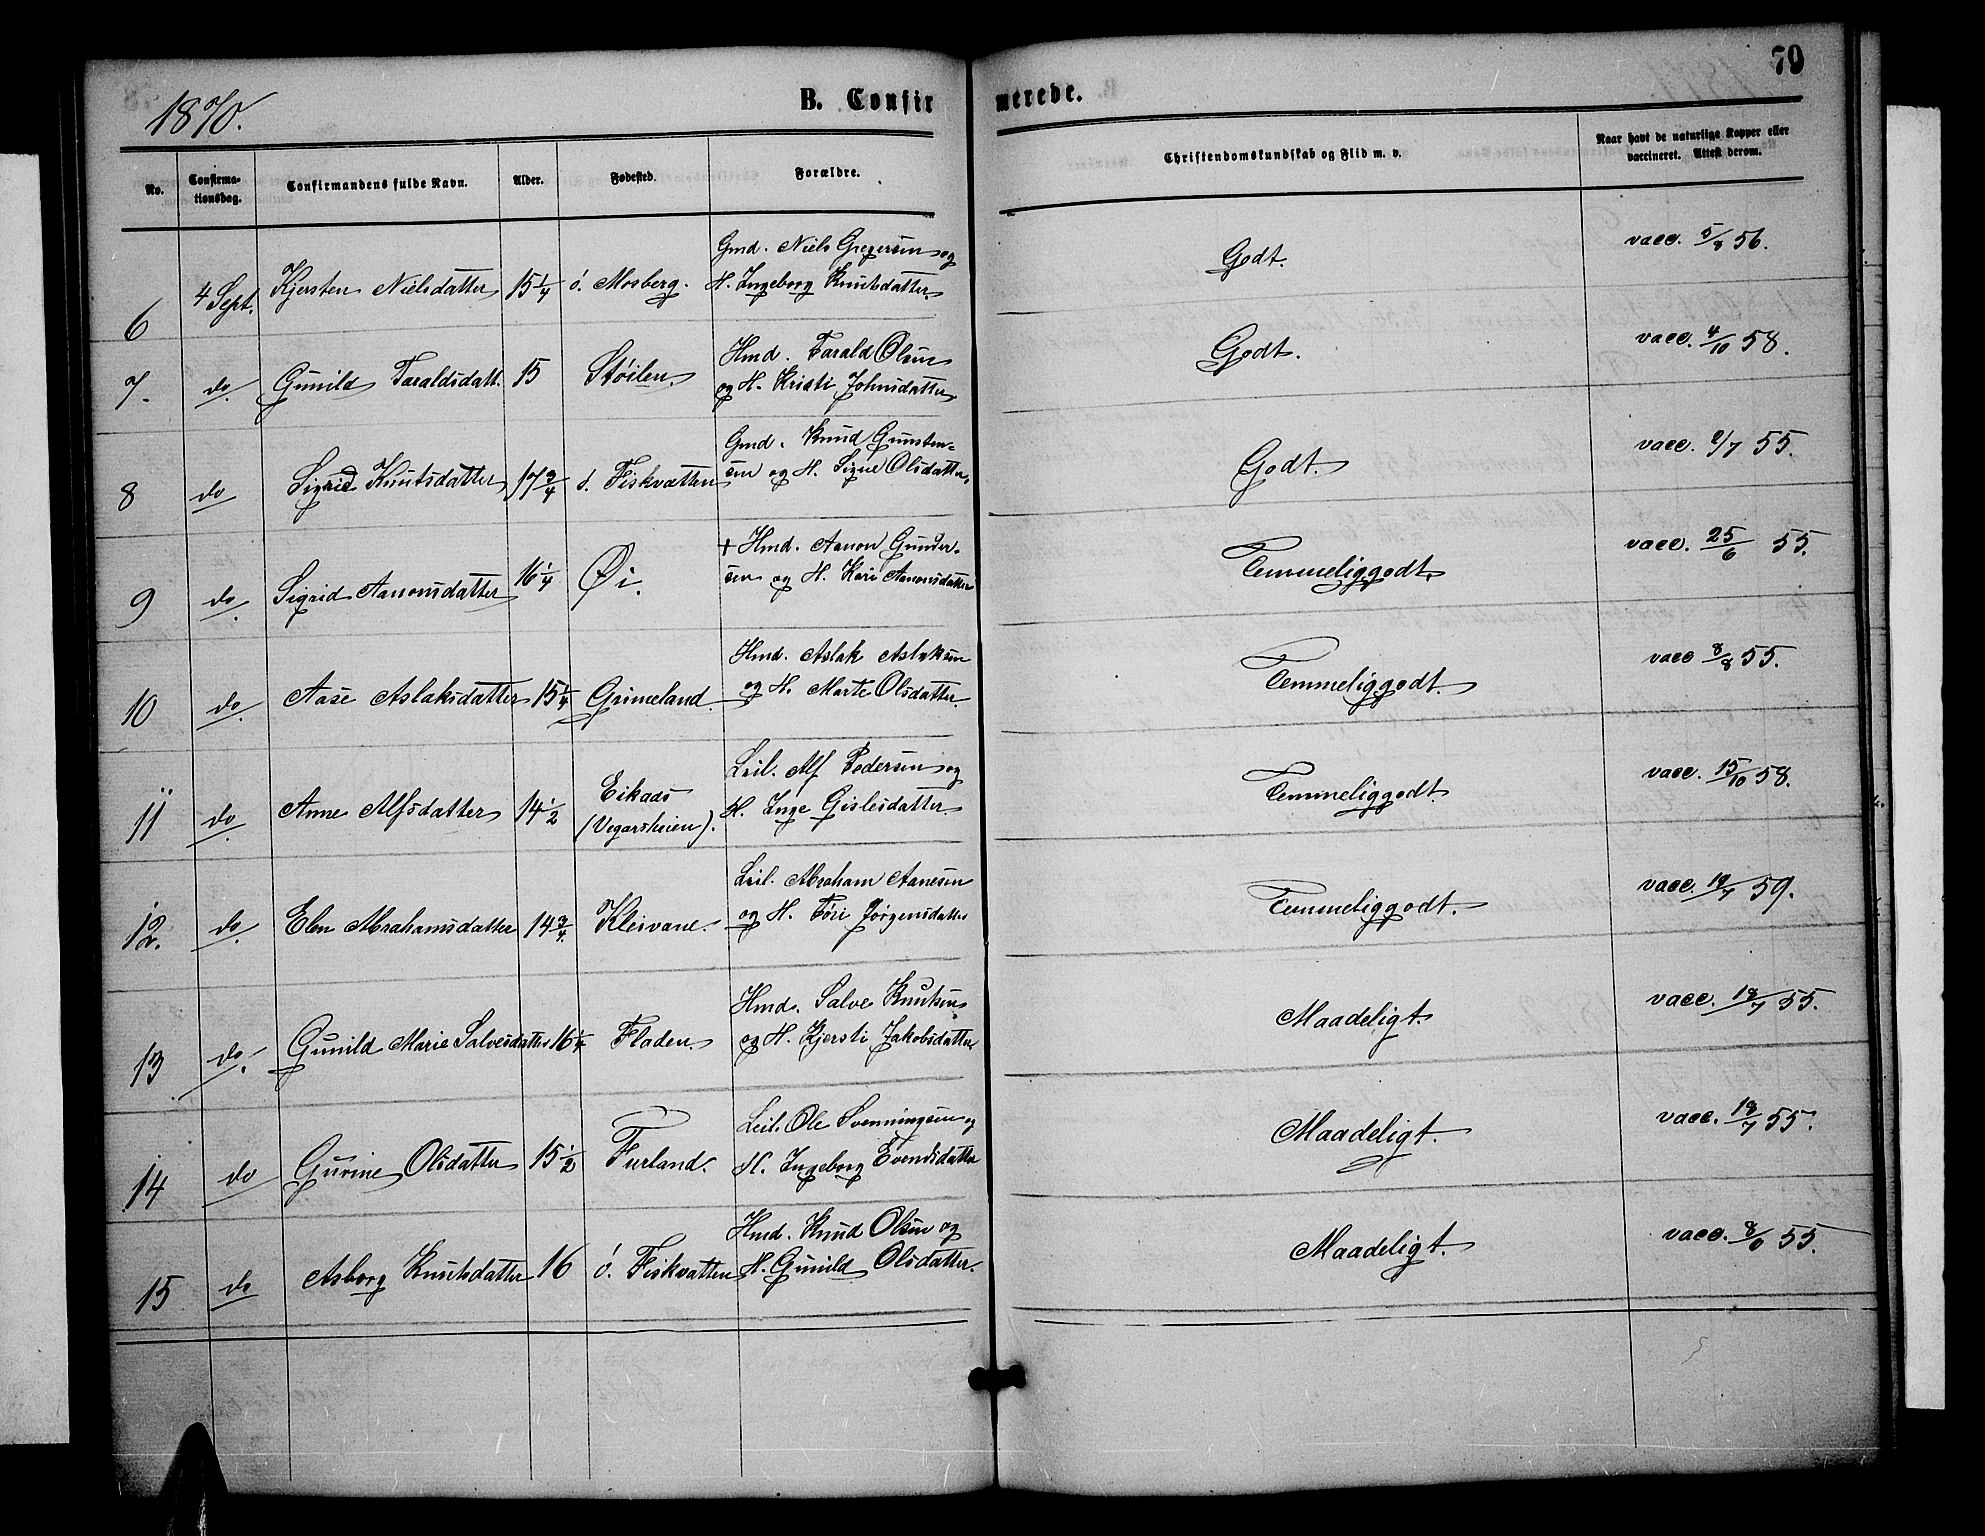 79
1870.
B. Confirmerede.
No. Confirmationsdag. Confirmandens fulde Navn. Alder. Fødested. Forældre. Christendomskundskab og Flid m. v. Naar havt de naturlige Kopper eller vaccineret. Attest derom.
6 4 Sept. Kjersten Nielsdatter 15 1/4 ö. Mosberg. Gmd. Niels Gregersen og H. Ingeborg Knutsdatter. Godt. vacc. 5/8 56.
7. do Gunild Taraldsdatt. 15 Støilen Hmd. Tarald Olsen og H. Kristi Johnsdatter Godt. vacc. 4/10 58.
8 do Sigrid Knutsdatter 17 3/4 Fiskvatten Gmd. Knud Gunstensen og H. Signe Olsdatter. Godt. vacc. /7 55.
9 do. Sigrid Aanonsdatter 16 1/4 Øi. + Hmd. Aanon Gundersen og H. Kari Aanonsdatter Temmeliggodt. vacc. 25/6 55.
10 do. Aase Aslaksdatter 15 1/4 Grimeland. Hmd. Aslak Aslaksen og H. Marte Olsdatter. Temmeliggodt. vacc 8/8 55.
11 do. Anne Alfsdatter 14 1/2 Eikaas (Vegarsheien). Leil. Alf Pedersen og H. Inge Gislesdatter. Temmeliggodt. vacc. 15/10 58.
12. do. Elen Abrahamsdatter 14 3/4. Kleivane. Leil. Abraham Aanesen og H. Töri Jörgensdatter Temmeliggodt. vacc. 19/7 59.
13 do. Gunild Marie Salvesdatter 16 1/4 Fladen. Hmd. Salve Knutsen og H. Kjersti Jakobsdatter. Maadeligt. vacc. 18/7 55.
14 do Gurine Olsdatter 15 1/2 Furland. Leil. Ole Svenningsen og H. Ingeborg Evendsdatter Maadeligt. vacc. 18/7 55.
15 do Asborg Knutsdatter 16 ö. Fiskvatten Hmd. Knud Olsen og H. Gunild Olsdatter. Maadeligt. vacc. 55.